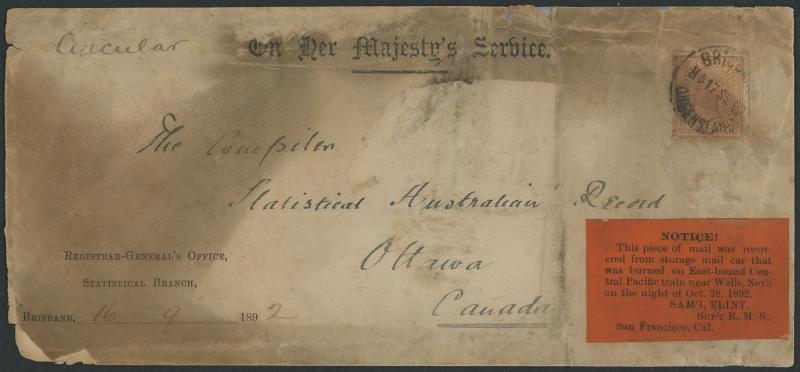 Circular
On Her Majesty's Service.
BRISBANE
17 SE 92
QUEENSLAND
The Compiler
Statistical Australian Record
Ottawa
Canada
REGISTRAR-GENERAL'S OFFICE,
STATISTICAL BRANCH,
BRISBANE, 16 9 1892
NOTICE!
This piece of mail was recov-
ered from storage mail car that
was burned on East-bound Cen-
tral Pacific train near Wells, Nev.,
on the night of Oct. 28, 1892.
SAM'L FLINT,
Sup't R. M. S.,
San Francisco, Cal.